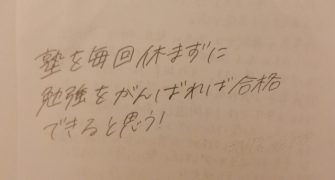 塾を毎回休まずに
勉強をがんばれば合格
できると思う!